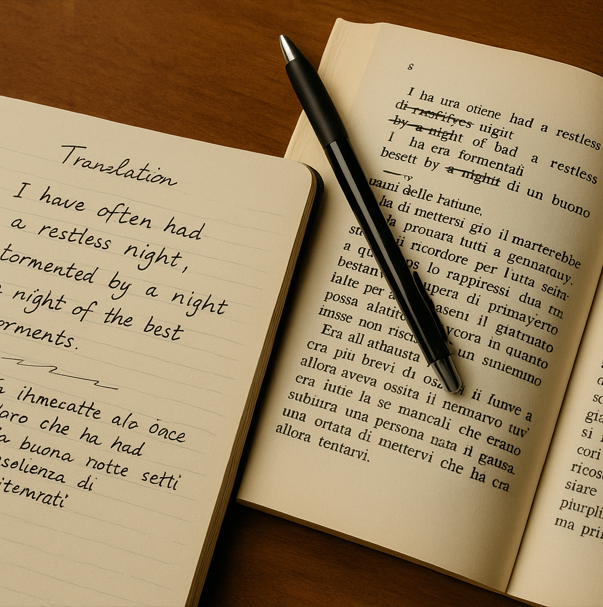 Translation
I have often had
a restless night,
tormented by a night
night of the best
orments.
ihmecatte alo once
laro che ha had
a buona notte setti
di
itemrati
s
I ha ura otiene had a restless
di uigit
by a night of bad a restless
I ha era formentati
besett by a night di un buono
delle ratiune.
ha di mettersi gio il marterebbe
la prouara tutti a gennatquy.
ii ricordore per l'utta seita-
a qu os lo rappiressi dua tm
bestan upera di primayerto
ialte per a aseni il giatruato
possa alatiro ycora in quanto
imsse non risci un suniemno
Era all athausta
cra più brevi di ii funve a
allora aveva ossita il nenmarvo tuv'
era iutie la se mancali che erano
subiura una persona nata rl gausa.
una ortata di mettervi che ha cra
allora tentarvi.
si
cori
ricos
siare
piurpli
ma pri